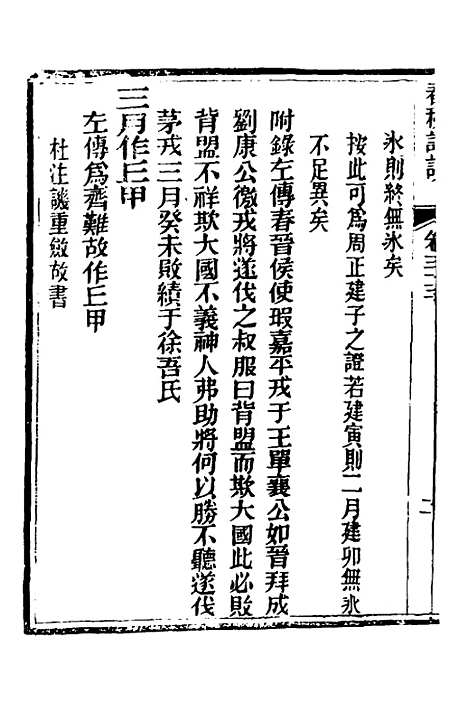 春秋
卷三十
二
氷則終無氷矣
按此可爲周正建子之證若建寅則二月建卯無氷
不足異矣
附錄左傳春晉侯使瑕嘉平戎于王單襄公如晉拜成
劉康公徼戎將遂伐之叔服曰背盟而欺大國此必敗
背盟不祥欺大國不義神人弗助將何以勝不聽遂伐
茅戎三月癸未敗績于徐吾氏
三月作丘甲
左傳爲齊難故作丘甲
杜注譏重斂故書